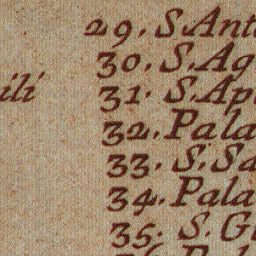 29. S. Ant
30. S. Ag
ili
31. S. Ap
32. Pala
33. S. Sa
34. Pala
35. S. G